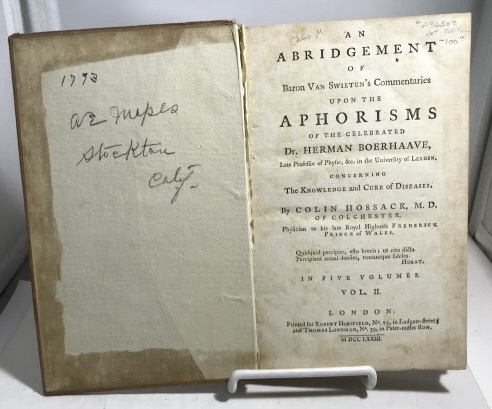 1773
Stockton
Calif.
AN
ABRIDGEMENT
OF
Baron VAN SWIETEN's Commentaries
UPON THE
APHORISMS
OF THE CELEBRATED
Dr. HERMAN BOERHAAVE,
Late Professor of Physic, &c. in the University of LEYDEN,
CONCERNING
The KNOWLEDGE and CURE of DISEASES.
By COLIN HOSSACK, M.D.
OF COLCHESTER.
Physician to his late Royal Highness FREDERICK
PRINCE of WALES.
Quidquid percipies, esto brevis; ut cito dicta
Percipiant animi dociles, teneantque fideles.
HORAT.
IN FIVE VOLUMES.
VOL. II.
LONDON:
Printed for ROBERT HORSFIELD, Nº. 22, in Ludgate-street;
and THOMAS LONGMAN, Nº. 39, in Pater-noster Row.
M DCC LXXIII.